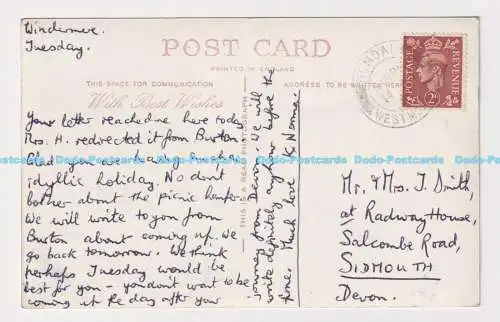 Windermere.
Tuesday.
POST CARD
PRINTED IN ENGLAND
THIS SPACE FOR COMMUNICATION
ADDRESS TO BE WRITTEN HERE
With Best Wishes
Your letter reached me here today
Mrs. H. redirected it from Burton.
Glad you are having such an
idyllic holiday. No don't
bother about the picnic hamper.
We will write to you from
Burton about coming up. We
go back tomorrow. We think
perhaps Tuesday would be
best for you - you don't want to be
coming up the day after your
journey from Devon. We will
write definitely anyhow before the
time. Much love K & Norman.
THIS IS A REAL PHOTOGRAPH
KENDAL
WESTMORLAND
POSTAGE
REVENUE
2D
Mr. & Mrs. J. Smith,
at Radway House,
Salcombe Road,
SIDMOUTH
Devon.
Dodo-Postcards Dodo-Postcards Dodo-Postcards Dodo-Postcards Dodo-Postcards